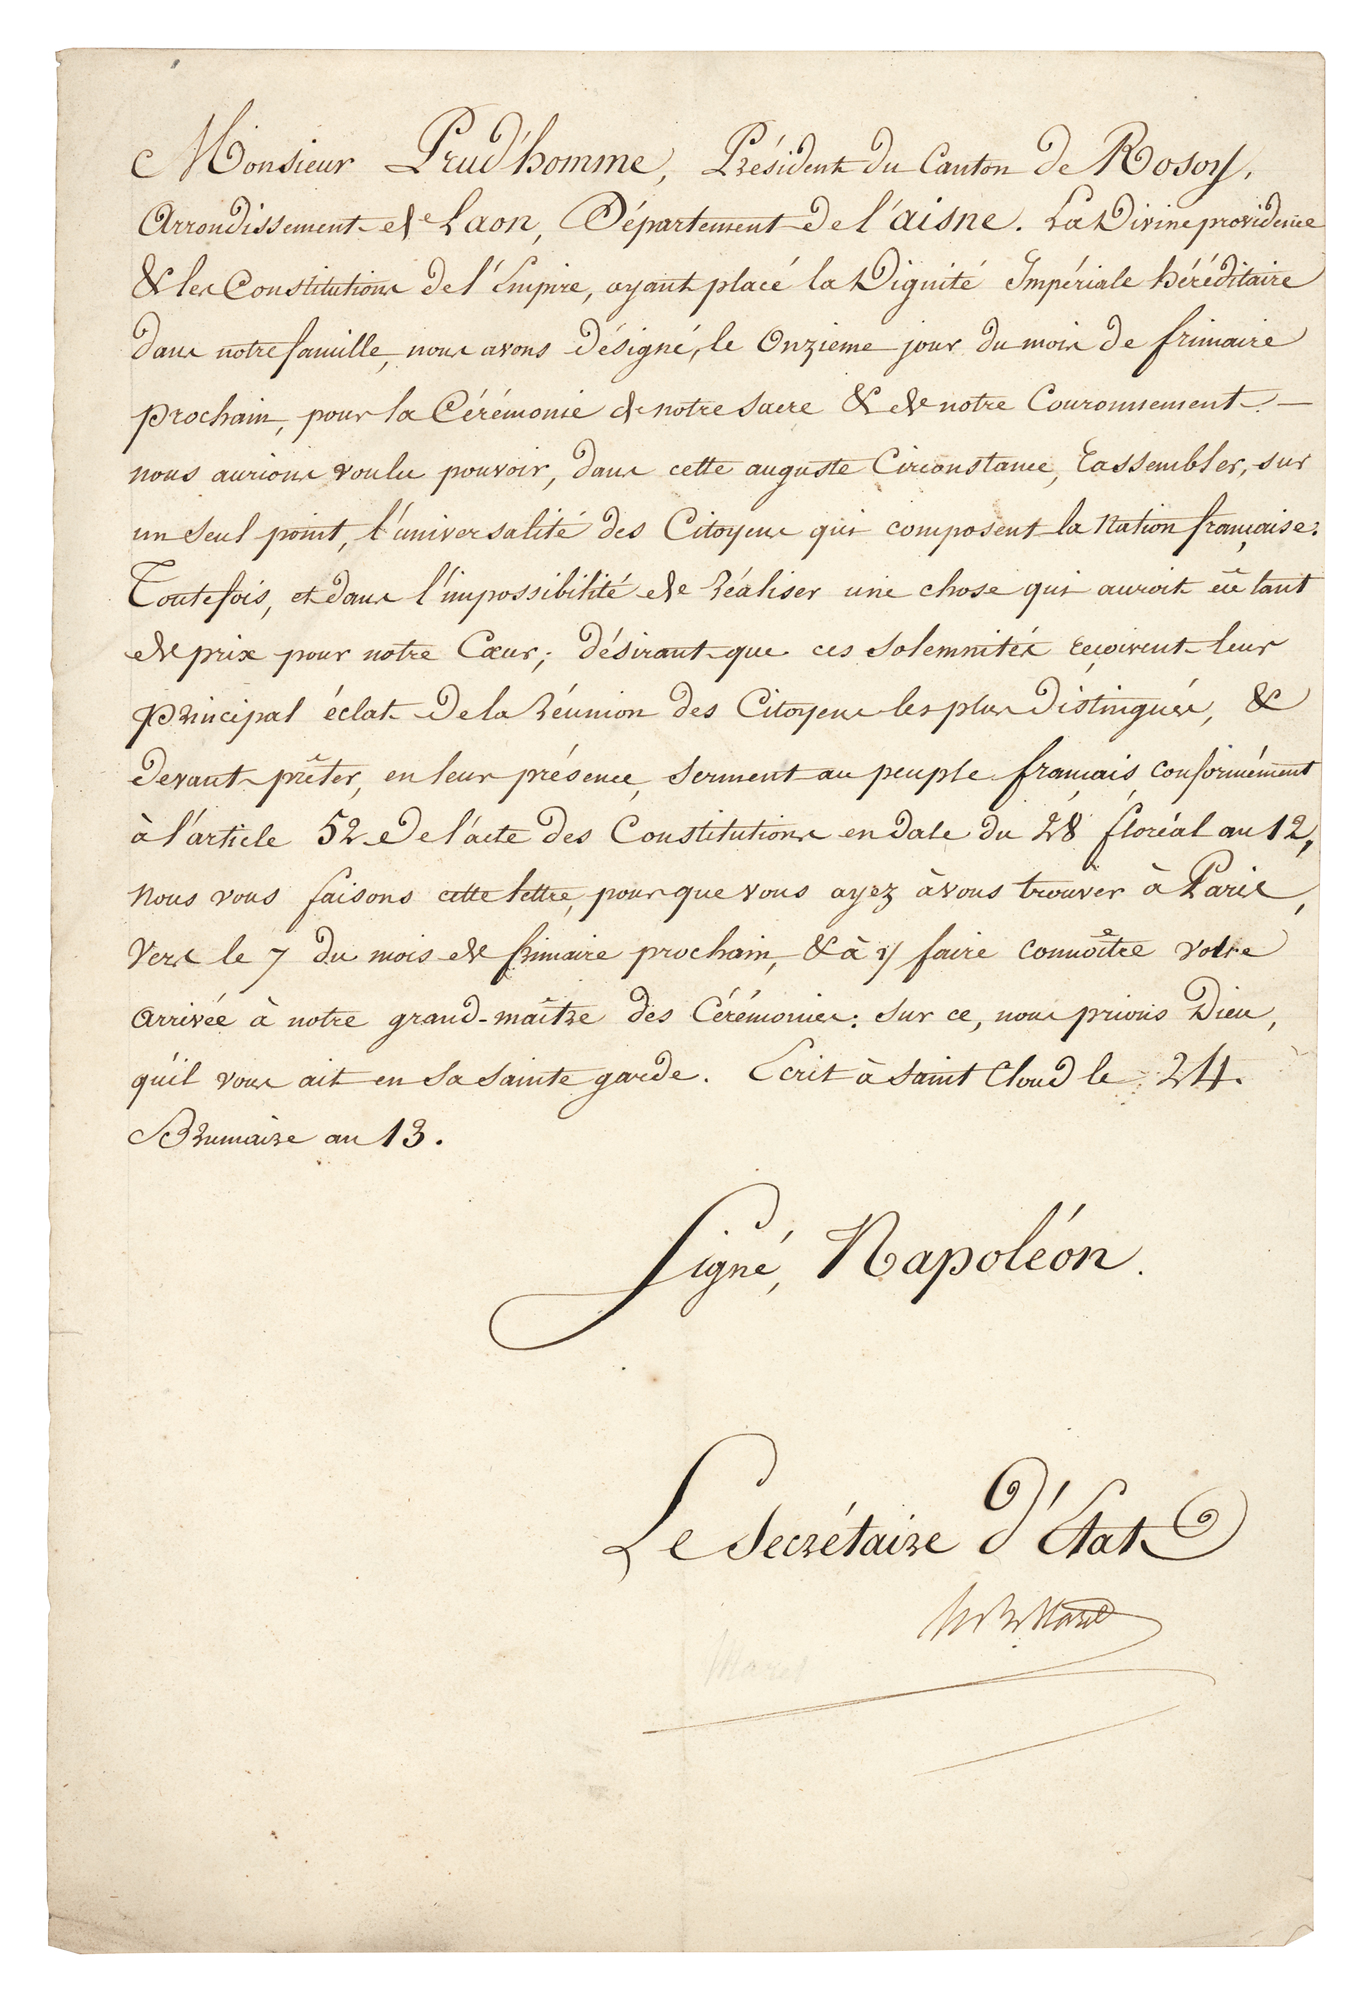 Monsieur Prud'homme, Président du Canton de Rosoy,
Arrondissement de Laon, Département de l'aisne. La Divine providence
& les Constitutions de l'Empire, ayant placé la Dignité Impériale héréditaire
dans notre famille, nous avons désigné, le Onzieme jour du mois de frimaire
prochain, pour la Cérémonie de notre sacre & de notre Couronnement. —
nous aurions voulu pouvoir, dans cette auguste Circonstance, rassembler, sur
un seul point, l'universalité des Citoyens qui composent la Nation française:
Toutefois, et dans l'impossibilité de réaliser une chose qui auroit eû tant
de prix pour notre Cœur; désirant que ces solemnités reçoivent leur
principal éclat de la réunion des Citoyens les plus distingués, &
devant prêter, en leur présence, serment au peuple français, conformément
à l'article 52 de l'acte des Constitutions en date du 28 floréal an 12,
Nous vous faisons cette lettre, pour que vous ayez à vous trouver à Paris,
Vers le 7 du mois de frimaire prochain, & à y faire connoître votre
arrivée à notre grand-maître des Cérémonies: sur ce, nous prions Dieu,
qu'il vous ait en sa sainte garde. Ecrit à Saint Cloud le 24.
Brumaire an 13.
Signé, Napoléon.
Le Secrétaire d'État
Maret